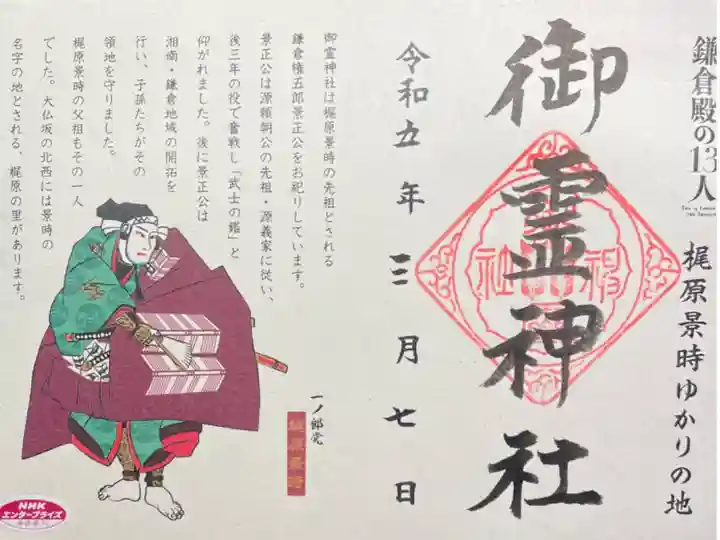 鎌倉殿の13人
梶原景時ゆかりの地
御霊神社
令和五年三月七日
御霊神社は梶原景時の先祖とされる
鎌倉権五郎景正公をお祀りしています。
景正公は源頼朝公の先祖・源義家に従い、
後三年の役で奮戦し「武士の鑑」と
仰がれました。後に景正公は
湘南・鎌倉地域の開拓を
行い、子孫たちがその
領地を守りました。
梶原景時の父祖もその一人
でした。大仏坂の北西には景時の
名字の地とされる、梶原の里があります。
一ノ郎党
梶原景時
NHK
エンタープライズ